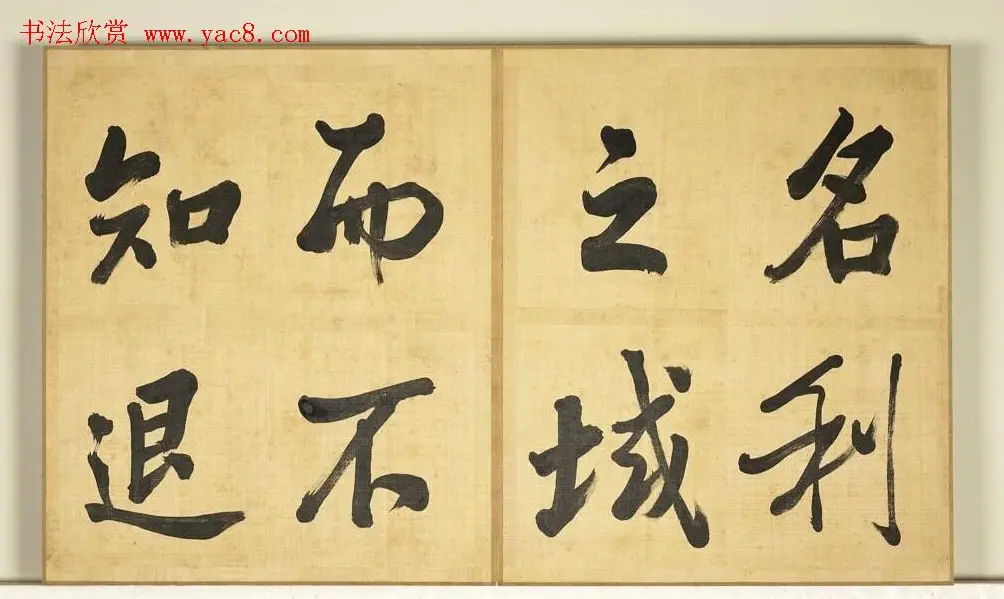 书法欣赏 www.yac8.com
名利
之域
而不
知退